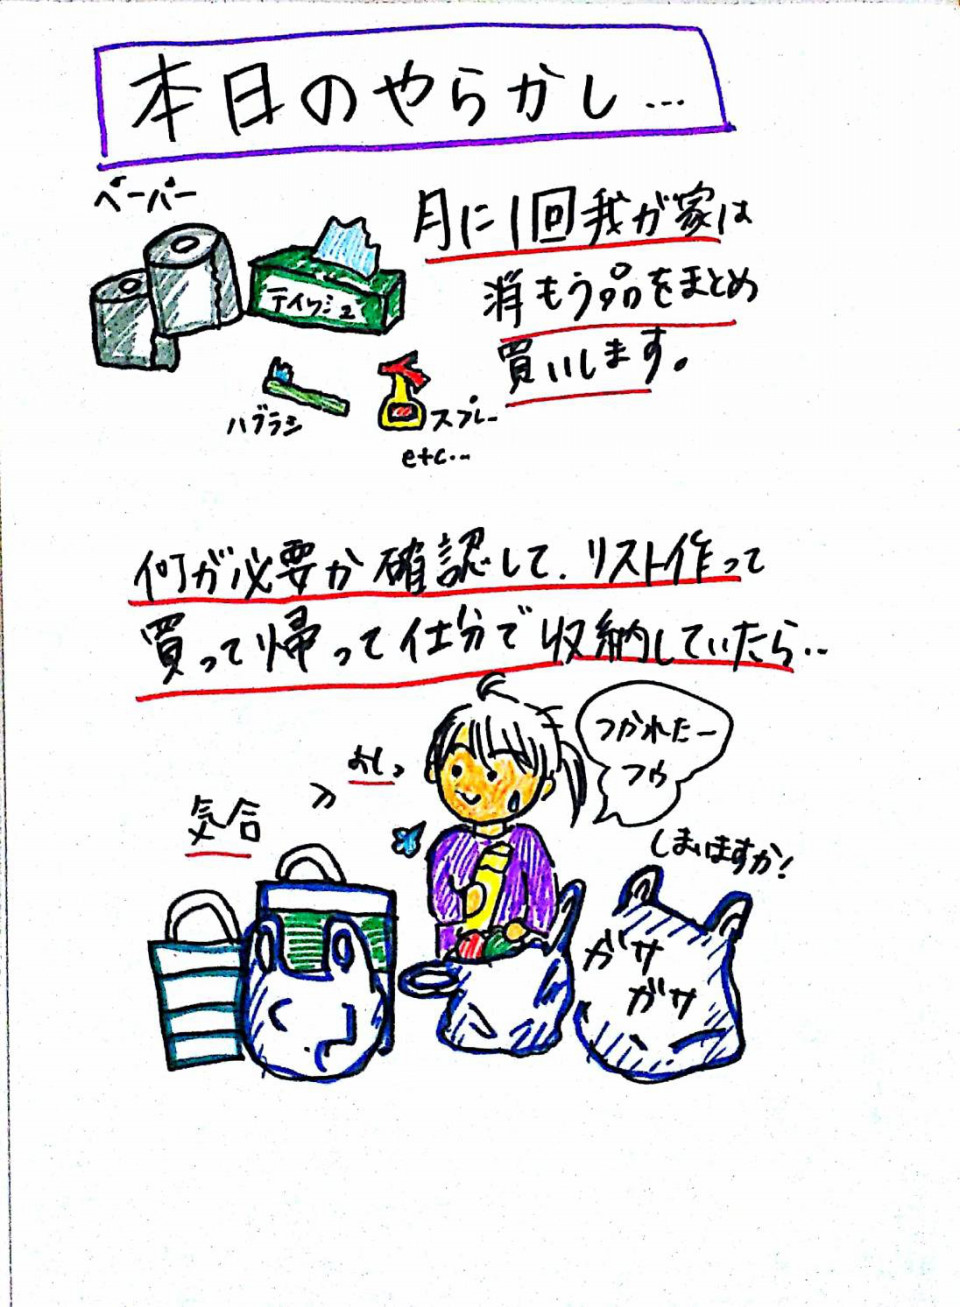 本日のやらかし…
ペーパー
ティッシュ
ハブラシ
スプレー
etc…
月に1回我が家は
消もう品をまとめ
買いします。
何が必要か確認して、リスト作って
買って帰って仕分で収納していたら…
よしっ
気合
つかれたー
フゥ
しまいますか!
ガサ
ガサ